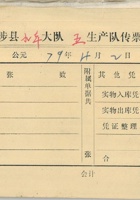 涉县永年大队五生产队传票
公元79年11月2日
张 数 附属单据共 其他凭
实物入库凭
实物出库凭
凭证整理
张 合
会计